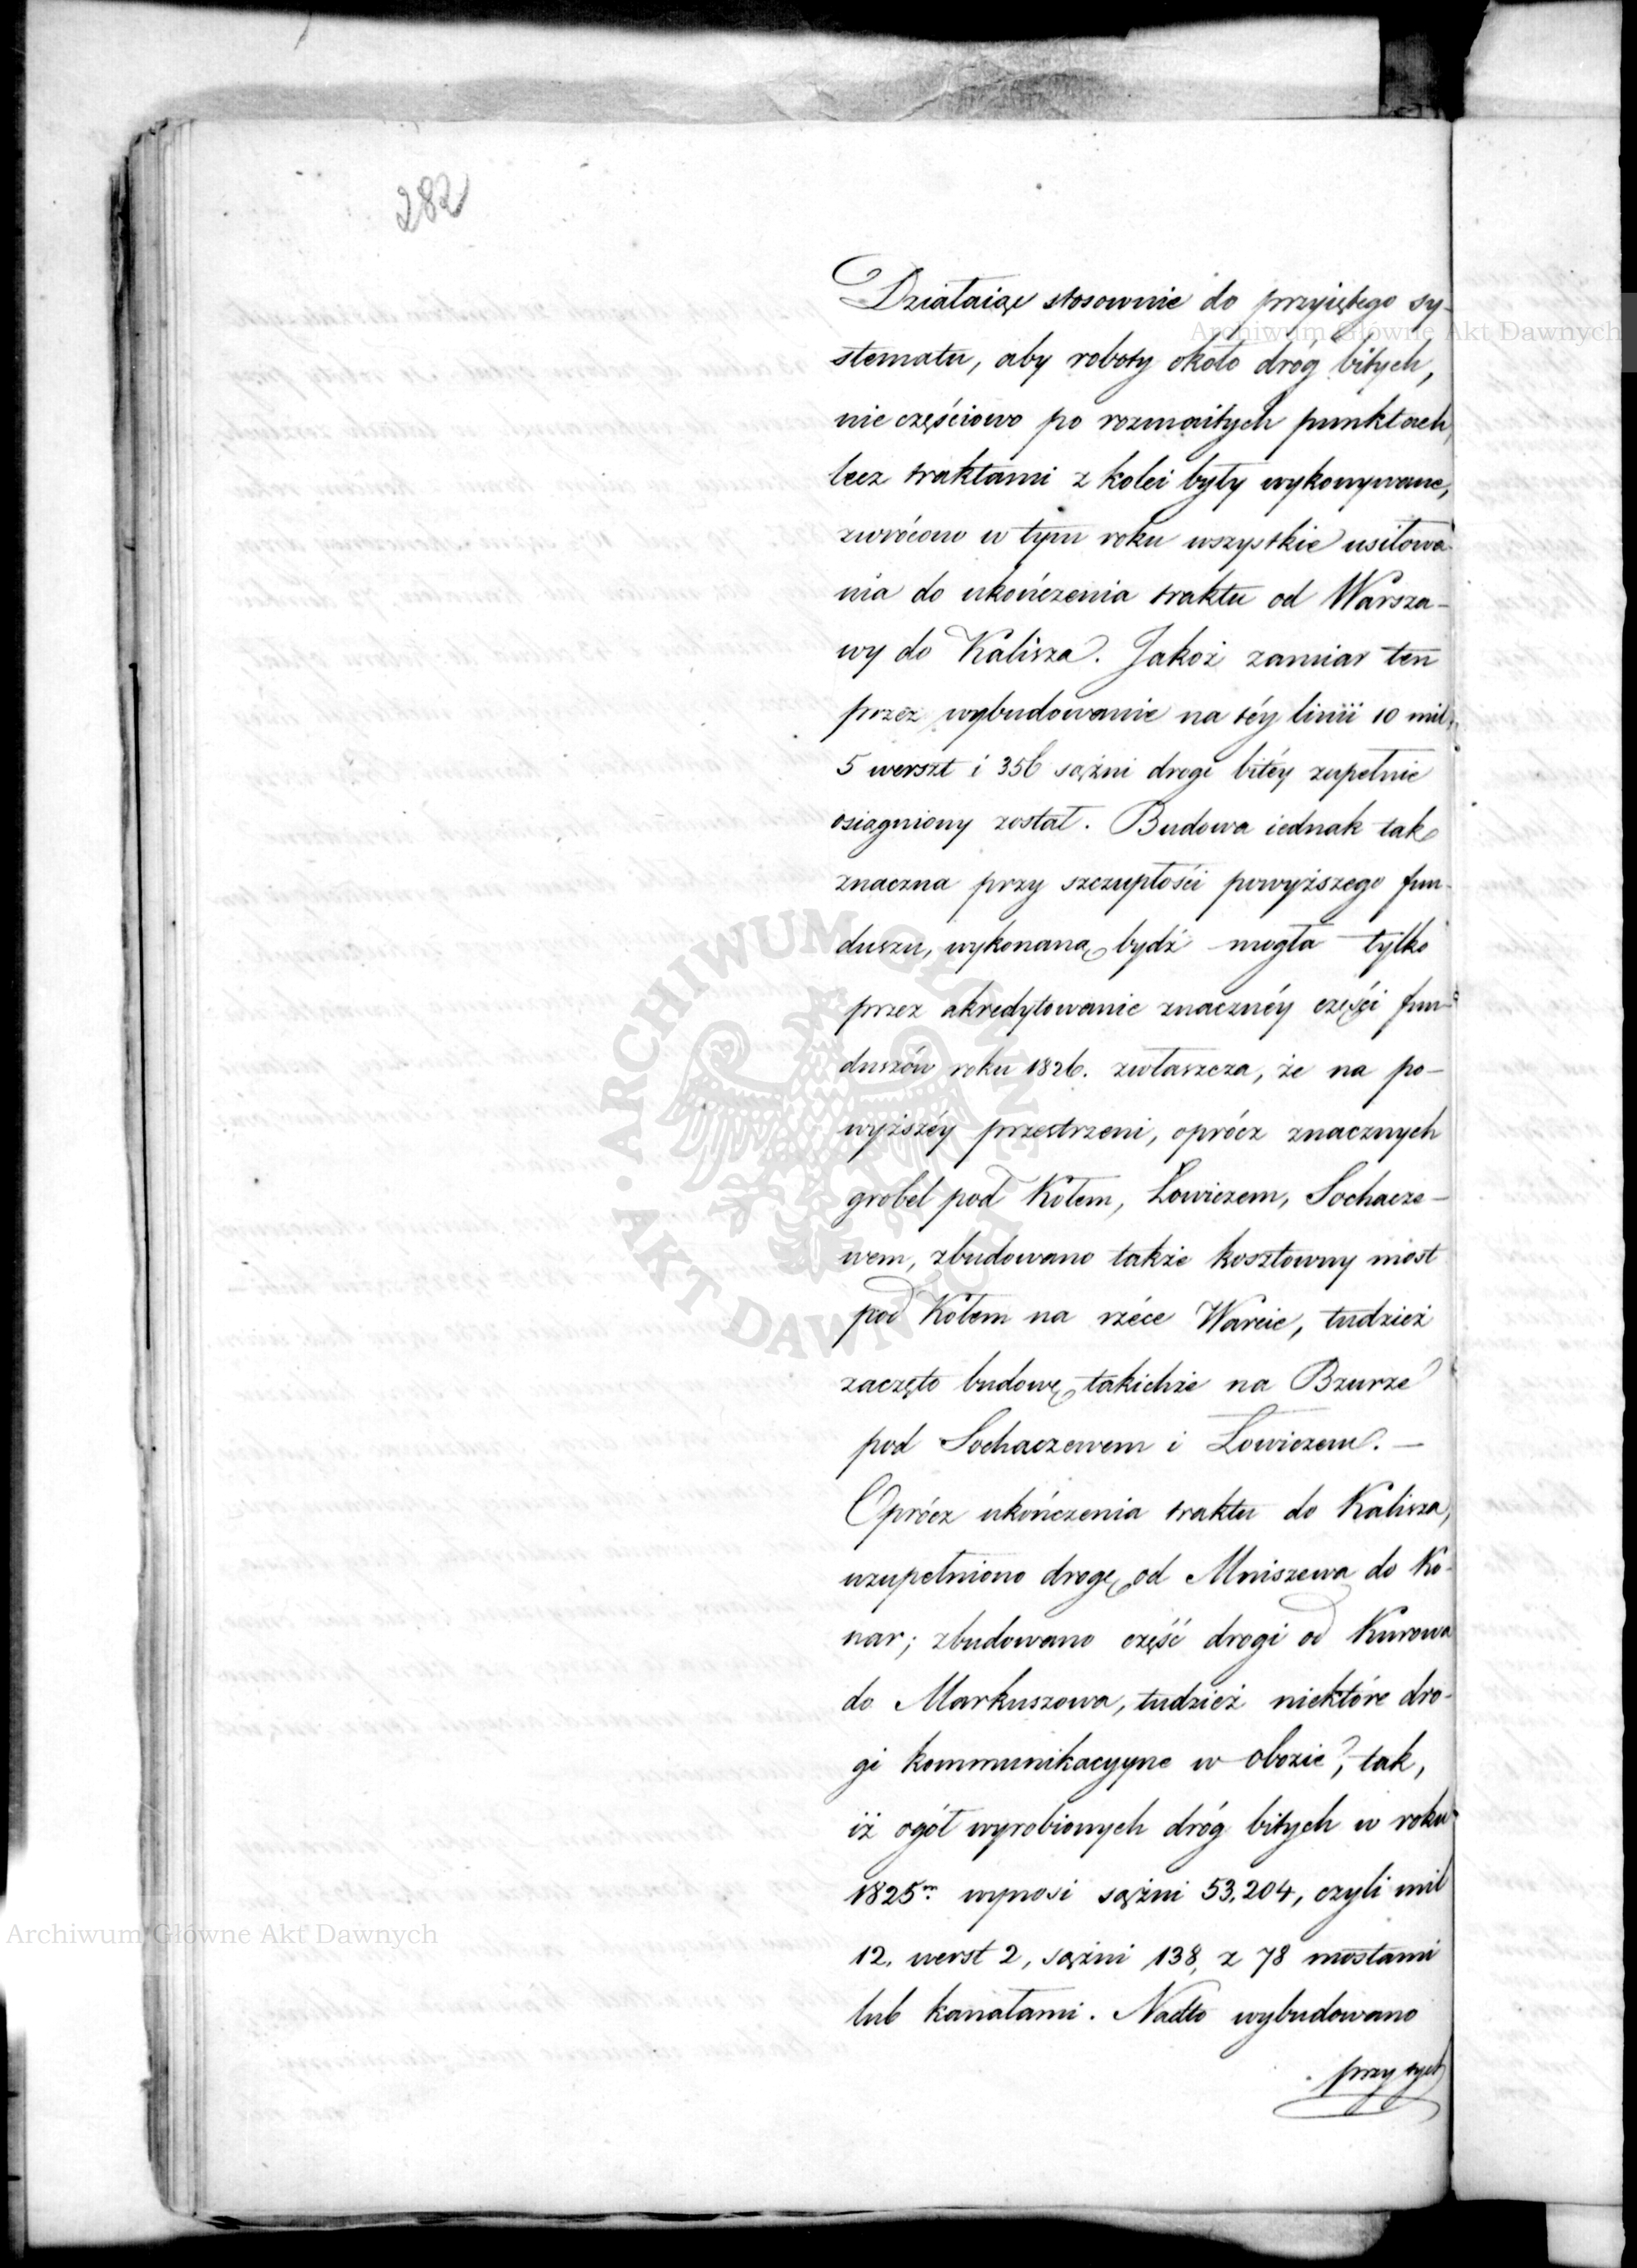 282
Działaiąc stosownie do przyiętego sy-
stematu, aby roboty około dróg bitych,
nie częściowo po rozmaitych punktach,
lecz traktami z kolei były wykonywane,
zwrócono w tym roku wszystkie usiłowa-
nia do ukończenia traktu od Warsza-
wy do Kalisza. Jakoż zamiar ten
przez wybudowanie na téy linii 10 mil,
5 werszt i 356 sążni drogi bitéy zupełnie
osiągniony został. Budowa iednak tak
znaczna przy szczupłości powyższego fun-
duszu, wykonaną bydź mogła tylko
przez akredytowanie znacznéy części fun-
duszów roku 1826. zwłaszcza, że na po-
wyższéy przestrzeni, oprócz znacznych
grobel pod Kołem, Łowiczem, Sochacze-
wem, zbudowano także kosztowny most
pod Kołem na rzéce Warcie, tudzież
zaczęto budowę takichże na Bzurze
pod Sochaczewem i Łowiczem. —
Oprócz ukończenia traktu do Kalisza,
uzupełniono drogę od Mniszewa do Ko-
nar; zbudowano część drogi od Kurowa
do Markuszowa, tudzież niektóre dro-
gi kommunikacyyne w obozie, tak,
iż ogół wyrobionych dróg bitych w roku
1825m wynosi sążni 53,204, czyli mil
12, werst 2, sążni 138, z 78 mostami
lub kanałami. Nadto wybudowano
przy tych
Archiwum Główne Akt Dawnych
ARCHIWUM GŁÓWNE AKT DAWNYCH
Archiwum Główne Akt Dawnych